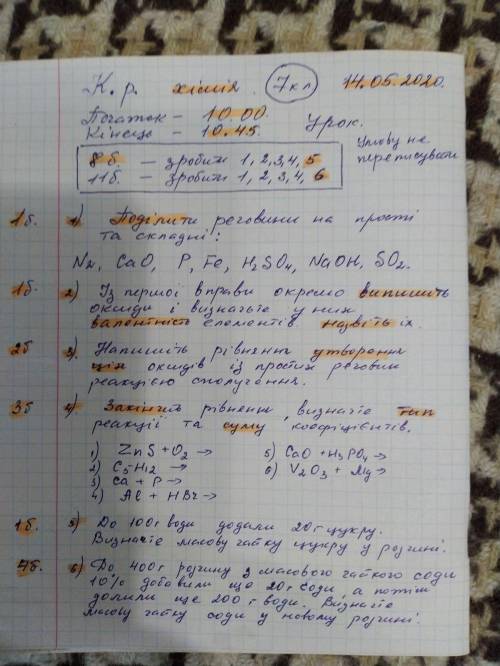 К. р. хімія. 7кл 14.05.2020.
Початок – 10.00.
Кінець – 10.45. Урок.
Умову не переписувати
8б. – зробити 1, 2, 3, 4, 5
11б. – зробити 1, 2, 3, 4, 6
1б. 1) Поділити речовини на прості
та складні:
N2, CaO, P, Fe, H2SO4, NaOH, SO2.
1б. 2) Із першої вправи окремо випишіть
оксиди і визначте у них
валентність елементів назвіть їх.
2б 3) Напишіть рівняння утворення
цих оксидів із простих речовин
реакцією сполучення.
3б 4) Закінчить рівняння, визначте тип
реакції та суму коефіцієнтів.
1) ZnS + O2 →
2) C5H12 →
3) Ca + P →
4) Al + HBr →
5) CaO + H3PO4 →
6) V2O3 + Mg →
1б. 5) До 100г води додали 20г цукру.
Визначте масову частку цукру у розчині.
4б. 6) До 400г розчину з масового часткою соди
10% добавили ще 20г соди, а потім
долили ще 200г води. Визначте
масову частку соди у новому розчині.